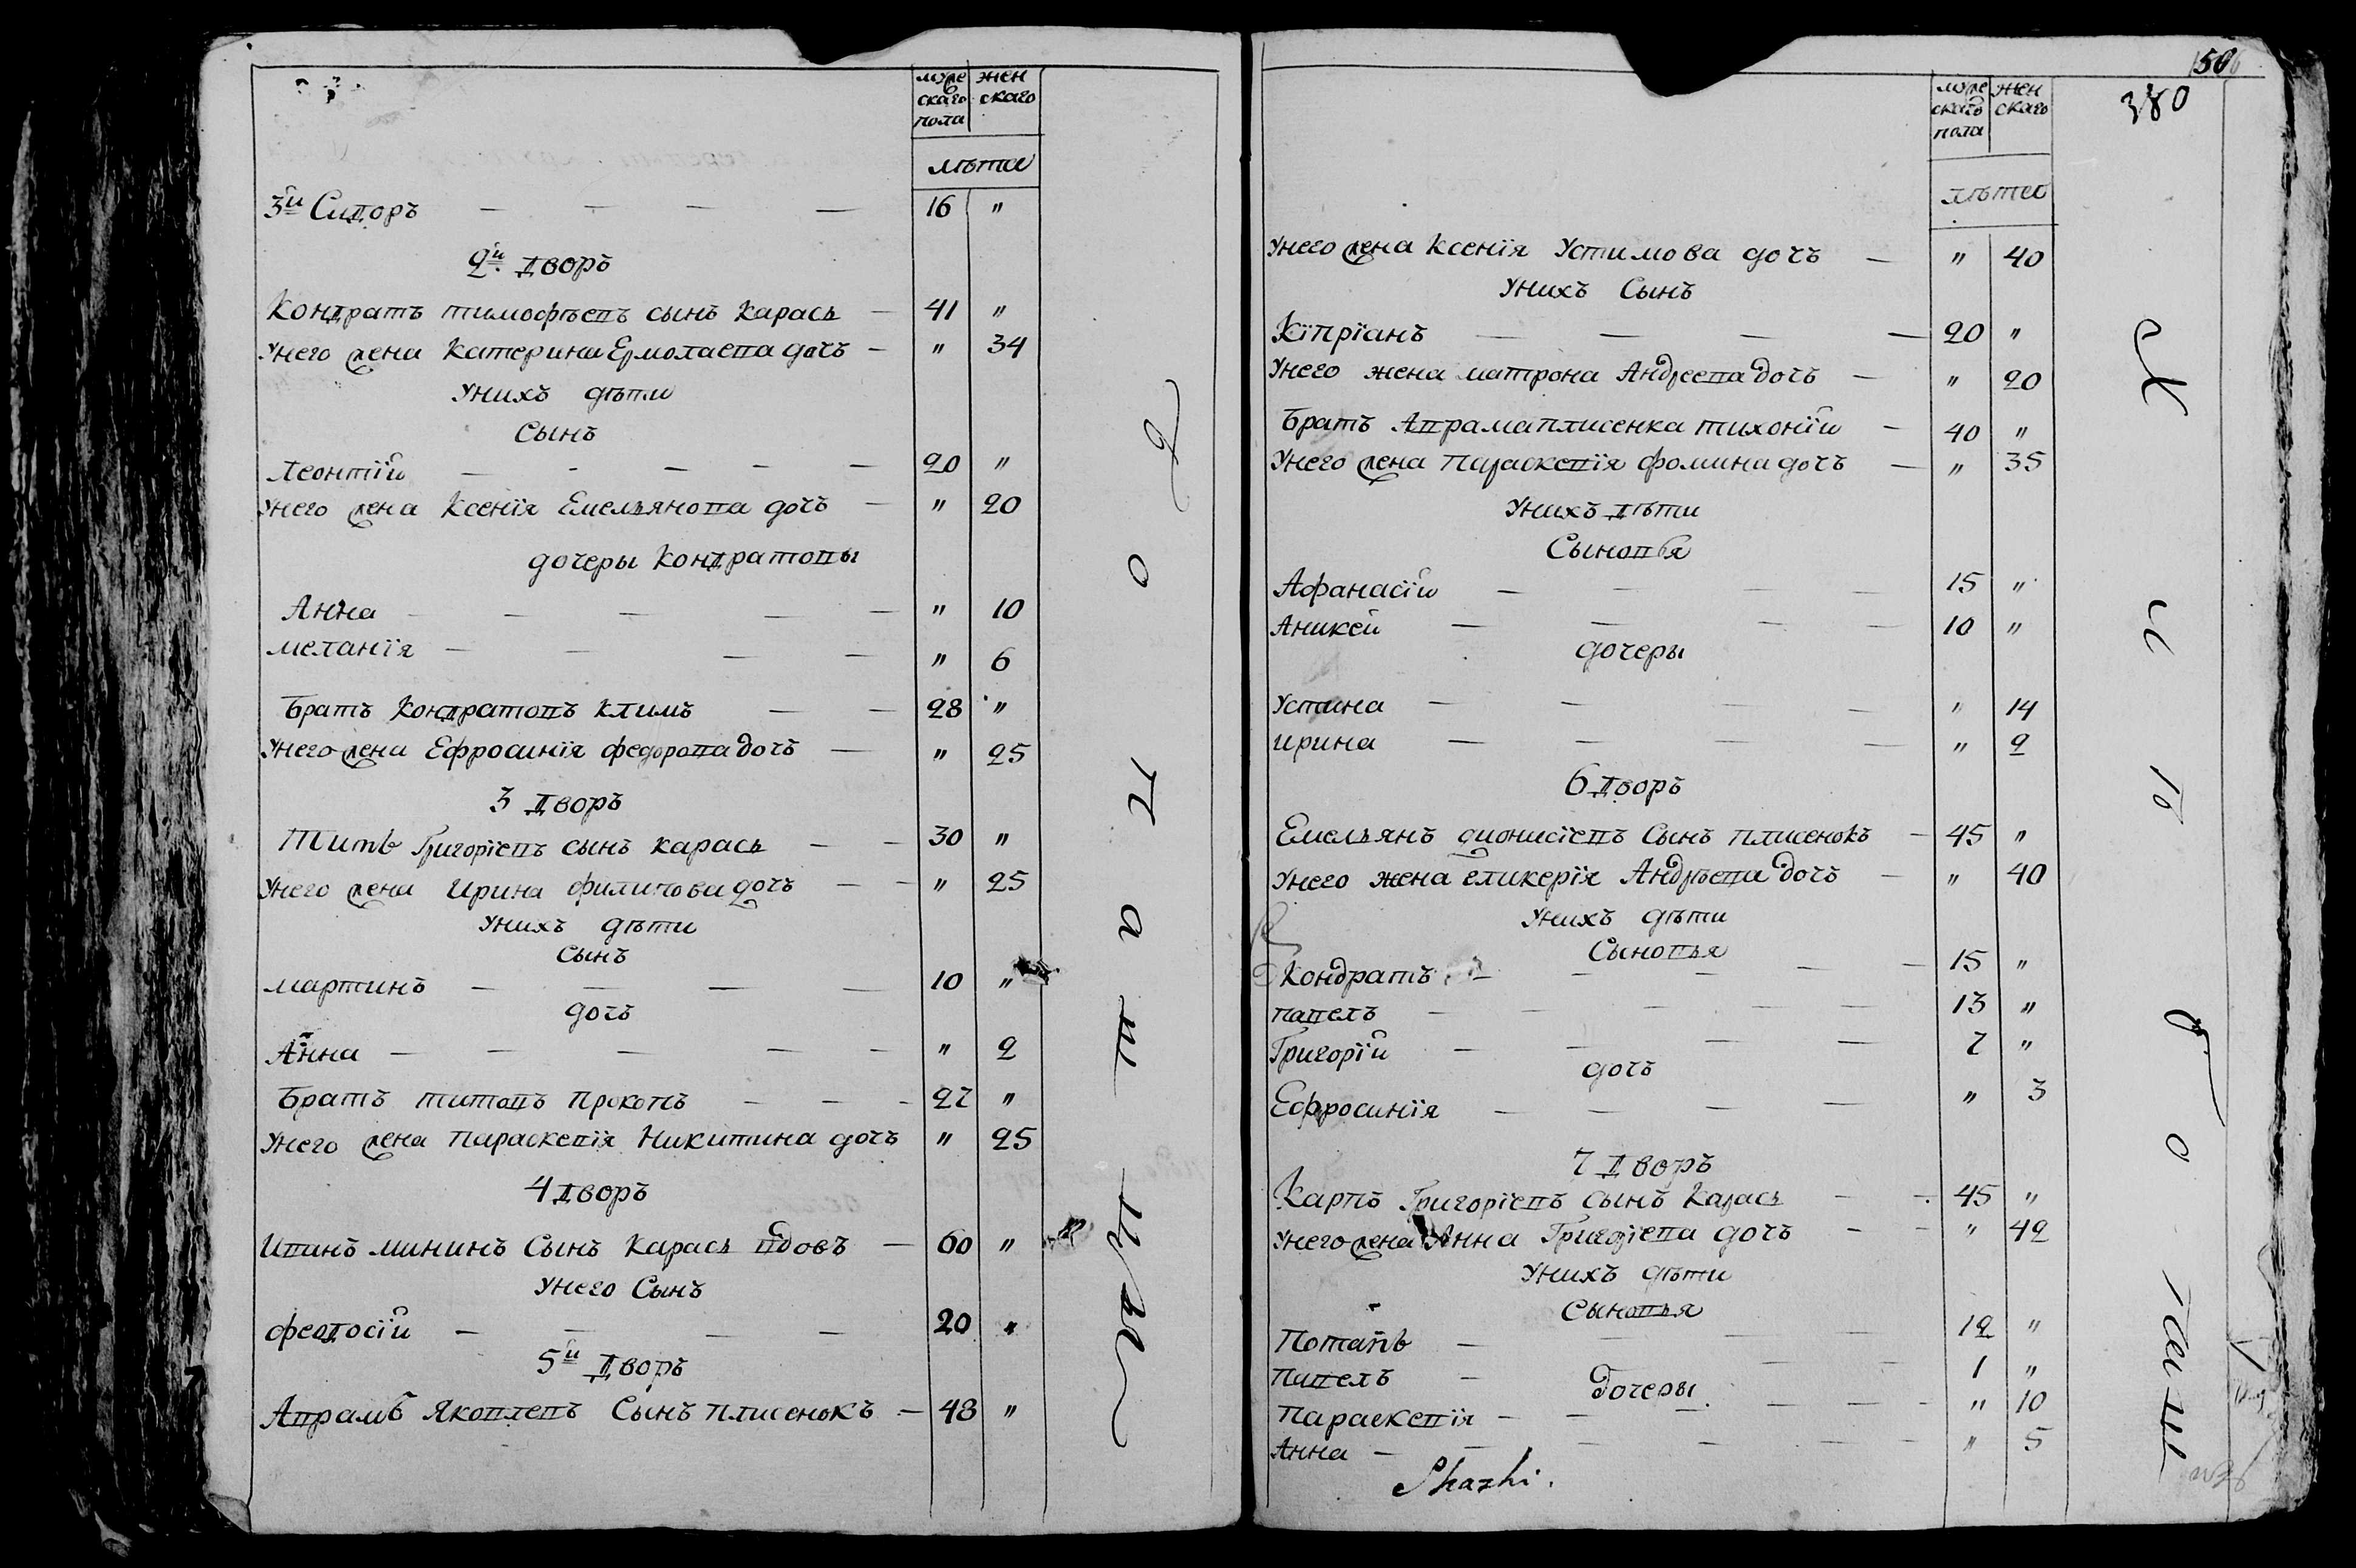 муже
скаго
пола
жен
скаго
лѣта
3й Сидоръ — — — — 16 "
2й дворъ
Кондратъ тимофѣевъ сынъ Карась — 41 "
Унего жена Катерина Ермолаева дочъ — " 34
Унихъ дѣти
Сынъ
Леонтій — — — — — 20 "
Унего жена Ксенія Емельянова дочъ — " 20
дочеры Кондратовы
Анна — — — — — " 10
меланія — — — — " 6
Братъ Кондратовъ климъ — — 28 "
Унего жена Ефросинія федорова дочъ — " 25
3 дворъ
Титъ Григоріевъ сынъ карась — — 30 "
Унего жена Ирина филипова дочъ — — " 25
Унихъ дѣти
Сынъ
мартинъ — — — — 10 "
дочъ
Анна — — — — — " 2
Братъ титовъ прокопъ — — - 27 "
Унего жена параскевія Никитина дочъ " 25
4 дворъ
Иванъ мининъ Сынъ Карась вдовъ — 60 "
Унего Сынъ
феодосій — — — — 20 "
5й дворъ
Аврамъ Яковлевъ Сынъ плисенокъ — 48 "
150
380
муже
скаго
пола
жен
скаго
лѣта
Унего жена Ксенія Устимова дочъ — " 40
Унихъ Сынъ
Кіпріанъ — — — — 20 "
Унего жена матрона Андреева дочъ — " 20
Братъ Аврама плисенка тихоній — 40 "
Унего жена Параскевія фомина дочъ — " 35
Унихъ дѣти
Сыновья
Афанасій — — — — 15 "
Аникей — — — — 10 "
дочеры
Устина — — — — " 14
Ирина — — — — " 2
6 дворъ
Емельянъ дионисіевъ Сынъ плисенокъ — 45 "
Унего жена гликерія Андрѣева дочъ — " 40
Унихъ дѣти
Сыновья
Кондратъ — — — — — 15 "
павелъ — — — — — 13 "
Григорій — — — — 7 "
дочъ
Ефросинія — — — — " 3
7 дворъ
Карпъ Григоріевъ сынъ Карась — - 45 "
Унего жена Анна Григоріева дочъ — - " 42
Унихъ дѣти
Сыновья
Потапъ — — — — 12 "
павелъ — — — 1 "
дочеры
параскевія — — — — — - " 10
Анна — — — — — — " 5